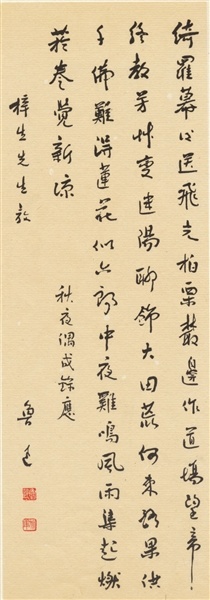 綺羅幕後送飛光柏栗叢邊作道場望帝
終教芳艸變迷陽聊飾大田荒何來酪果供
千佛難得蓮花似六郎中夜雞鳴風雨集起燃
菸卷覺新涼
秋夜偶成錄應
梓生先生教
魯迅